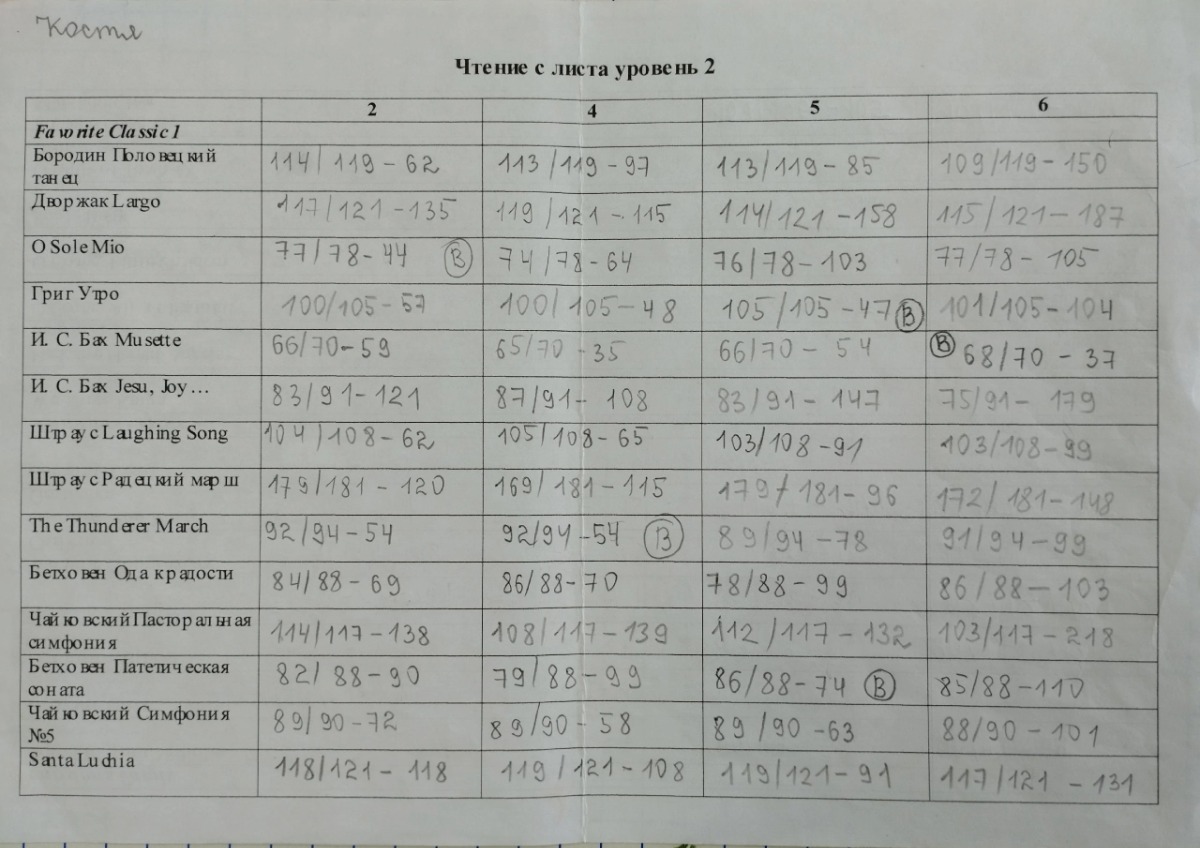 Костя
Чтение с листа уровень 2
2 4 5 6
Favorite Classic 1
Бородин Половецкий танец 114/119-62 113/119-97 113/119-85 109/119-150
Дворжак Largo 117/121-135 119/121-115 114/121-158 115/121-187
O Sole Mio 77/78-44 В 74/78-64 76/78-103 77/78-105
Григ Утро 100/105-57 100/105-48 105/105-47 В 101/105-104
И. С. Бах Musette 66/70-59 65/70-35 66/70-54 В 68/70-37
И. С. Бах Jesu, Joy… 83/91-121 87/91-108 83/91-147 75/91-179
Штраус Laughing Song 104/108-62 105/108-65 103/108-91 103/108-99
Штраус Радецкий марш 179/181-120 169/181-115 179/181-96 172/181-148
The Thunderer March 92/94-54 92/94-54 В 89/94-78 91/94-99
Бетховен Ода к радости 84/88-69 86/88-70 78/88-99 86/88-103
Чайковский Пасторальная симфония 114/117-138 108/117-139 112/117-132 103/117-218
Бетховен Патетическая соната 82/88-90 79/88-99 86/88-74 В 85/88-110
Чайковский Симфония №5 89/90-72 89/90-58 89/90-63 88/90-101
Santa Luchia 118/121-118 119/121-108 119/121-91 117/121-131